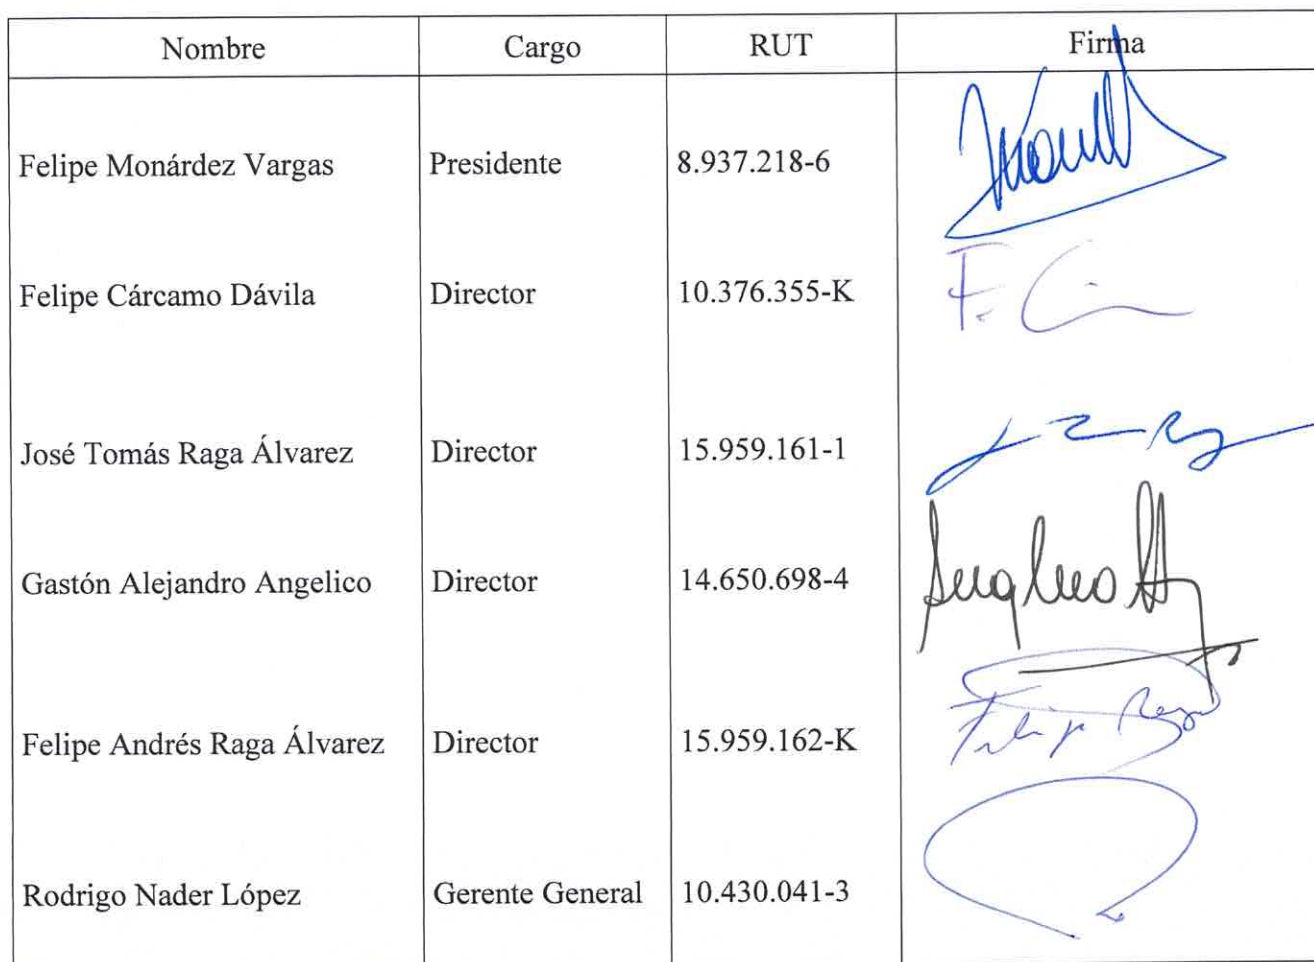 Nombre Cargo RUT Firma
Felipe Monárdez Vargas Presidente 8.937.218-6
Felipe Cárcamo Dávila Director 10.376.355-K
José Tomás Raga Álvarez Director 15.959.161-1
Gastón Alejandro Angelico Director 14.650.698-4
Felipe Andrés Raga Álvarez Director 15.959.162-K
Felipe Raga
Rodrigo Nader López Gerente General 10.430.041-3